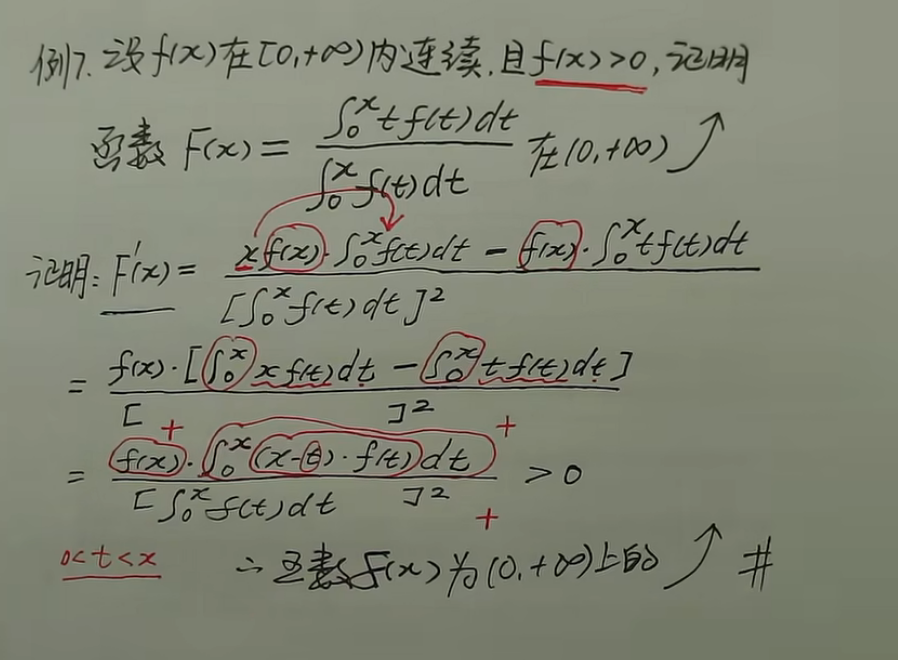 例7. 设f(x)在[0,+∞)内连续,且f(x)>0,证明
函数 F(x) = ∫₀ˣ t f(t) dt / ∫₀ˣ f(t) dt 在(0,+∞) ↗
证明: F'(x) = x f(x)·∫₀ˣ f(t) dt − f(x)·∫₀ˣ t f(t) dt / [∫₀ˣ f(t) dt]²
= f(x)·[∫₀ˣ x f(t) dt − ∫₀ˣ t f(t) dt] / [ ]²
+ +
= f(x)·∫₀ˣ (x-t)·f(t) dt / [∫₀ˣ f(t) dt ]² > 0
+
0<t<x ∴函数F(x)为(0,+∞)上的 ↗ #